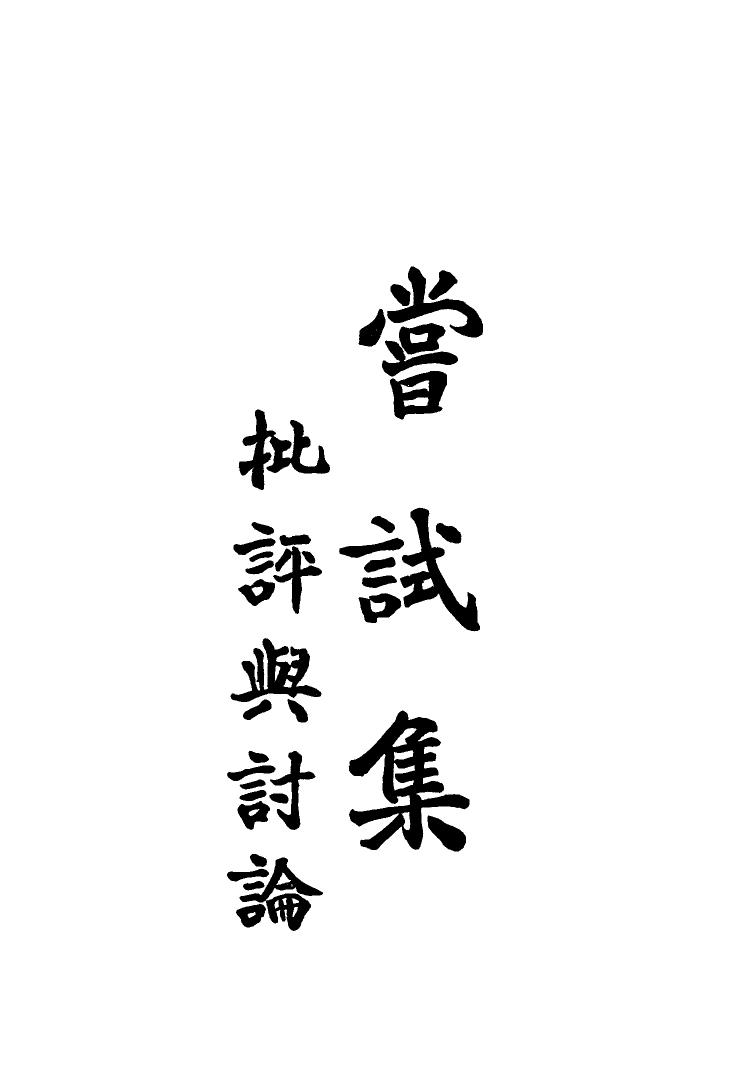 嘗試集
批評與討論